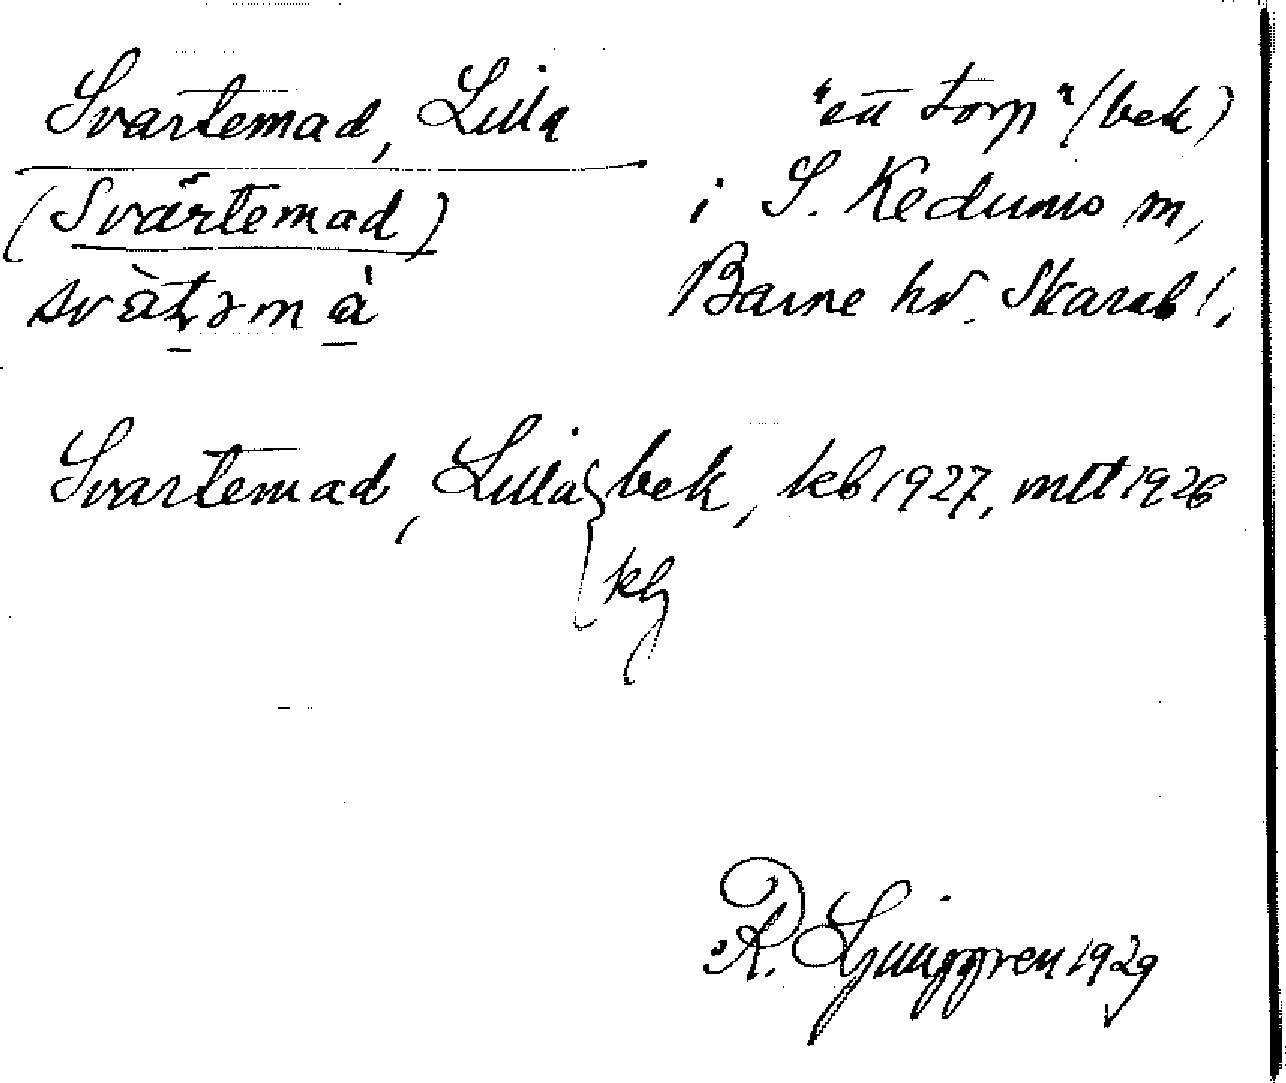 Svartemad, Lilla
(Svärtemad)
svàt̠ǝmà̠
"ett torp" (bek)
i S. Kedums sn,
Barne hd. Skarab l,
Svartemad, Lilla { bek, kb 1927, mtl 1926
R. Ljunggren 1929